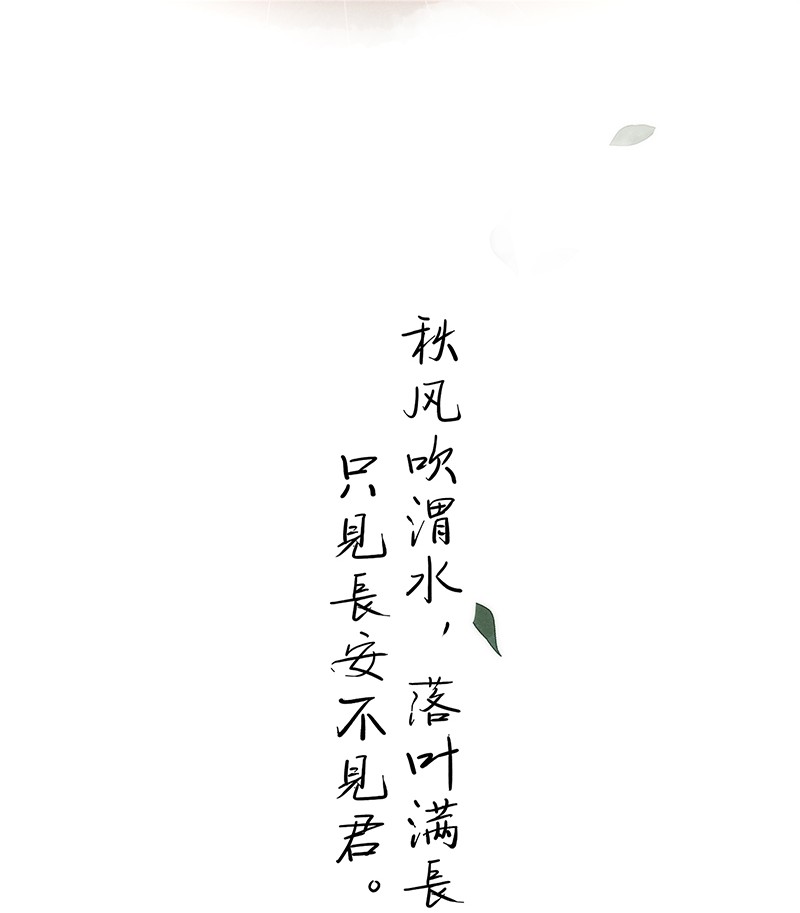 秋风吹渭水，落叶满長
只見長安不見君。